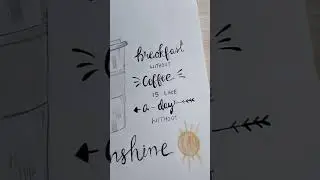 breakfast
WITHOUT
Coffee
IS LIKE
a-day
WITHOUT
nshine